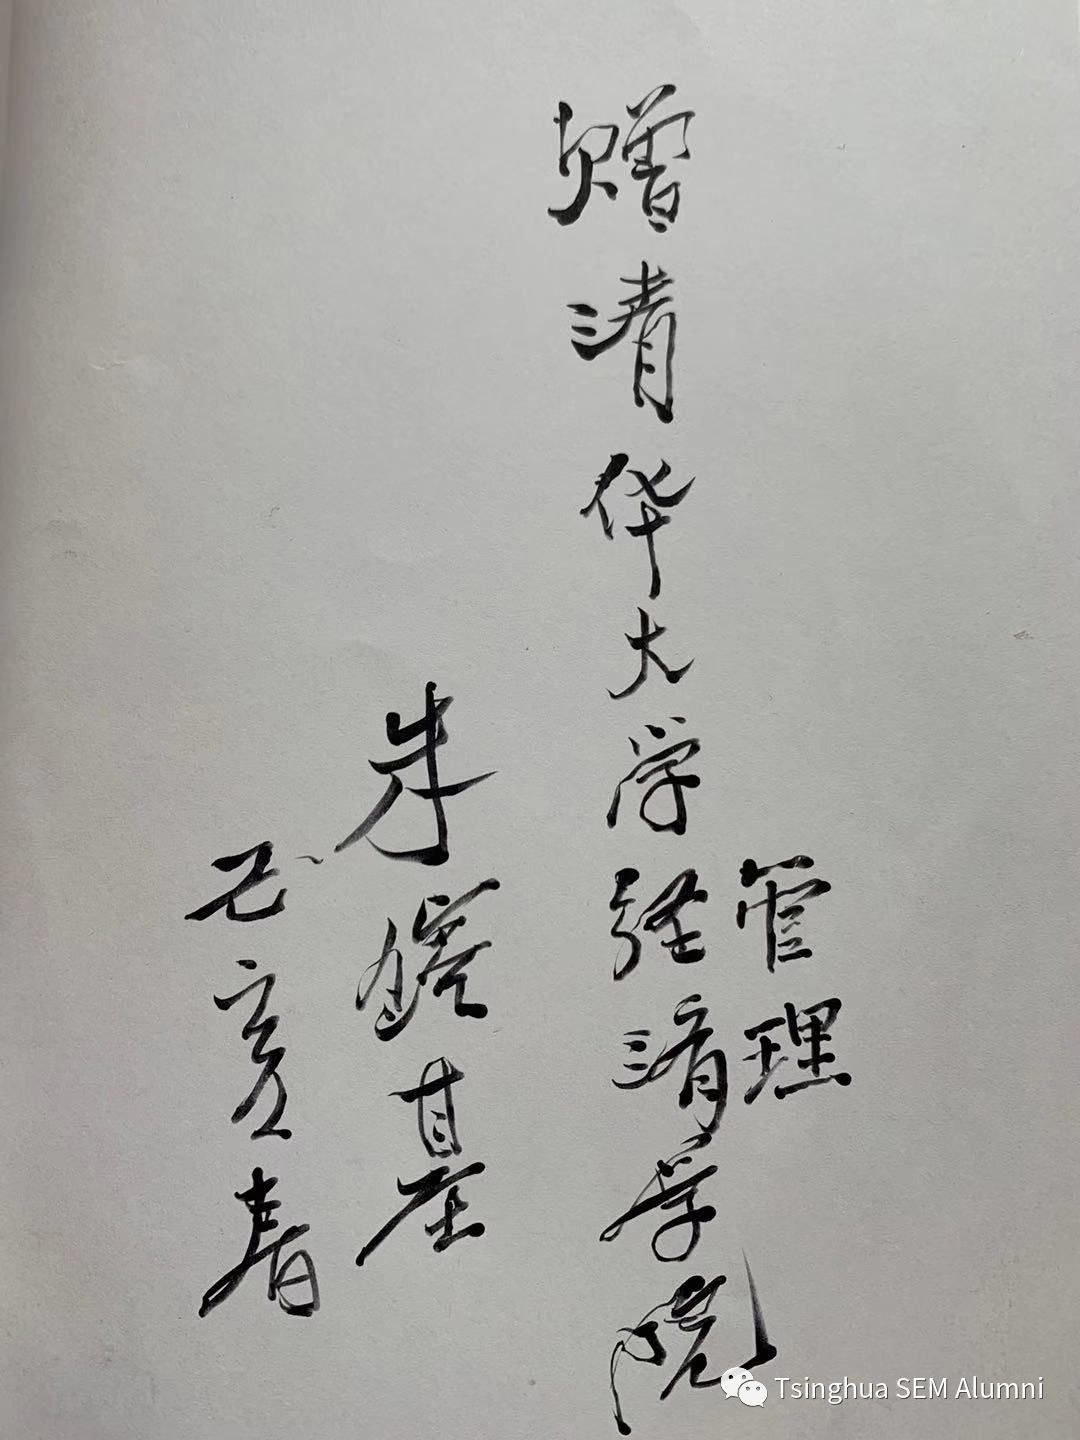 赠清华大学经济学院
管理
朱镕基
己亥春
Tsinghua SEM Alumni